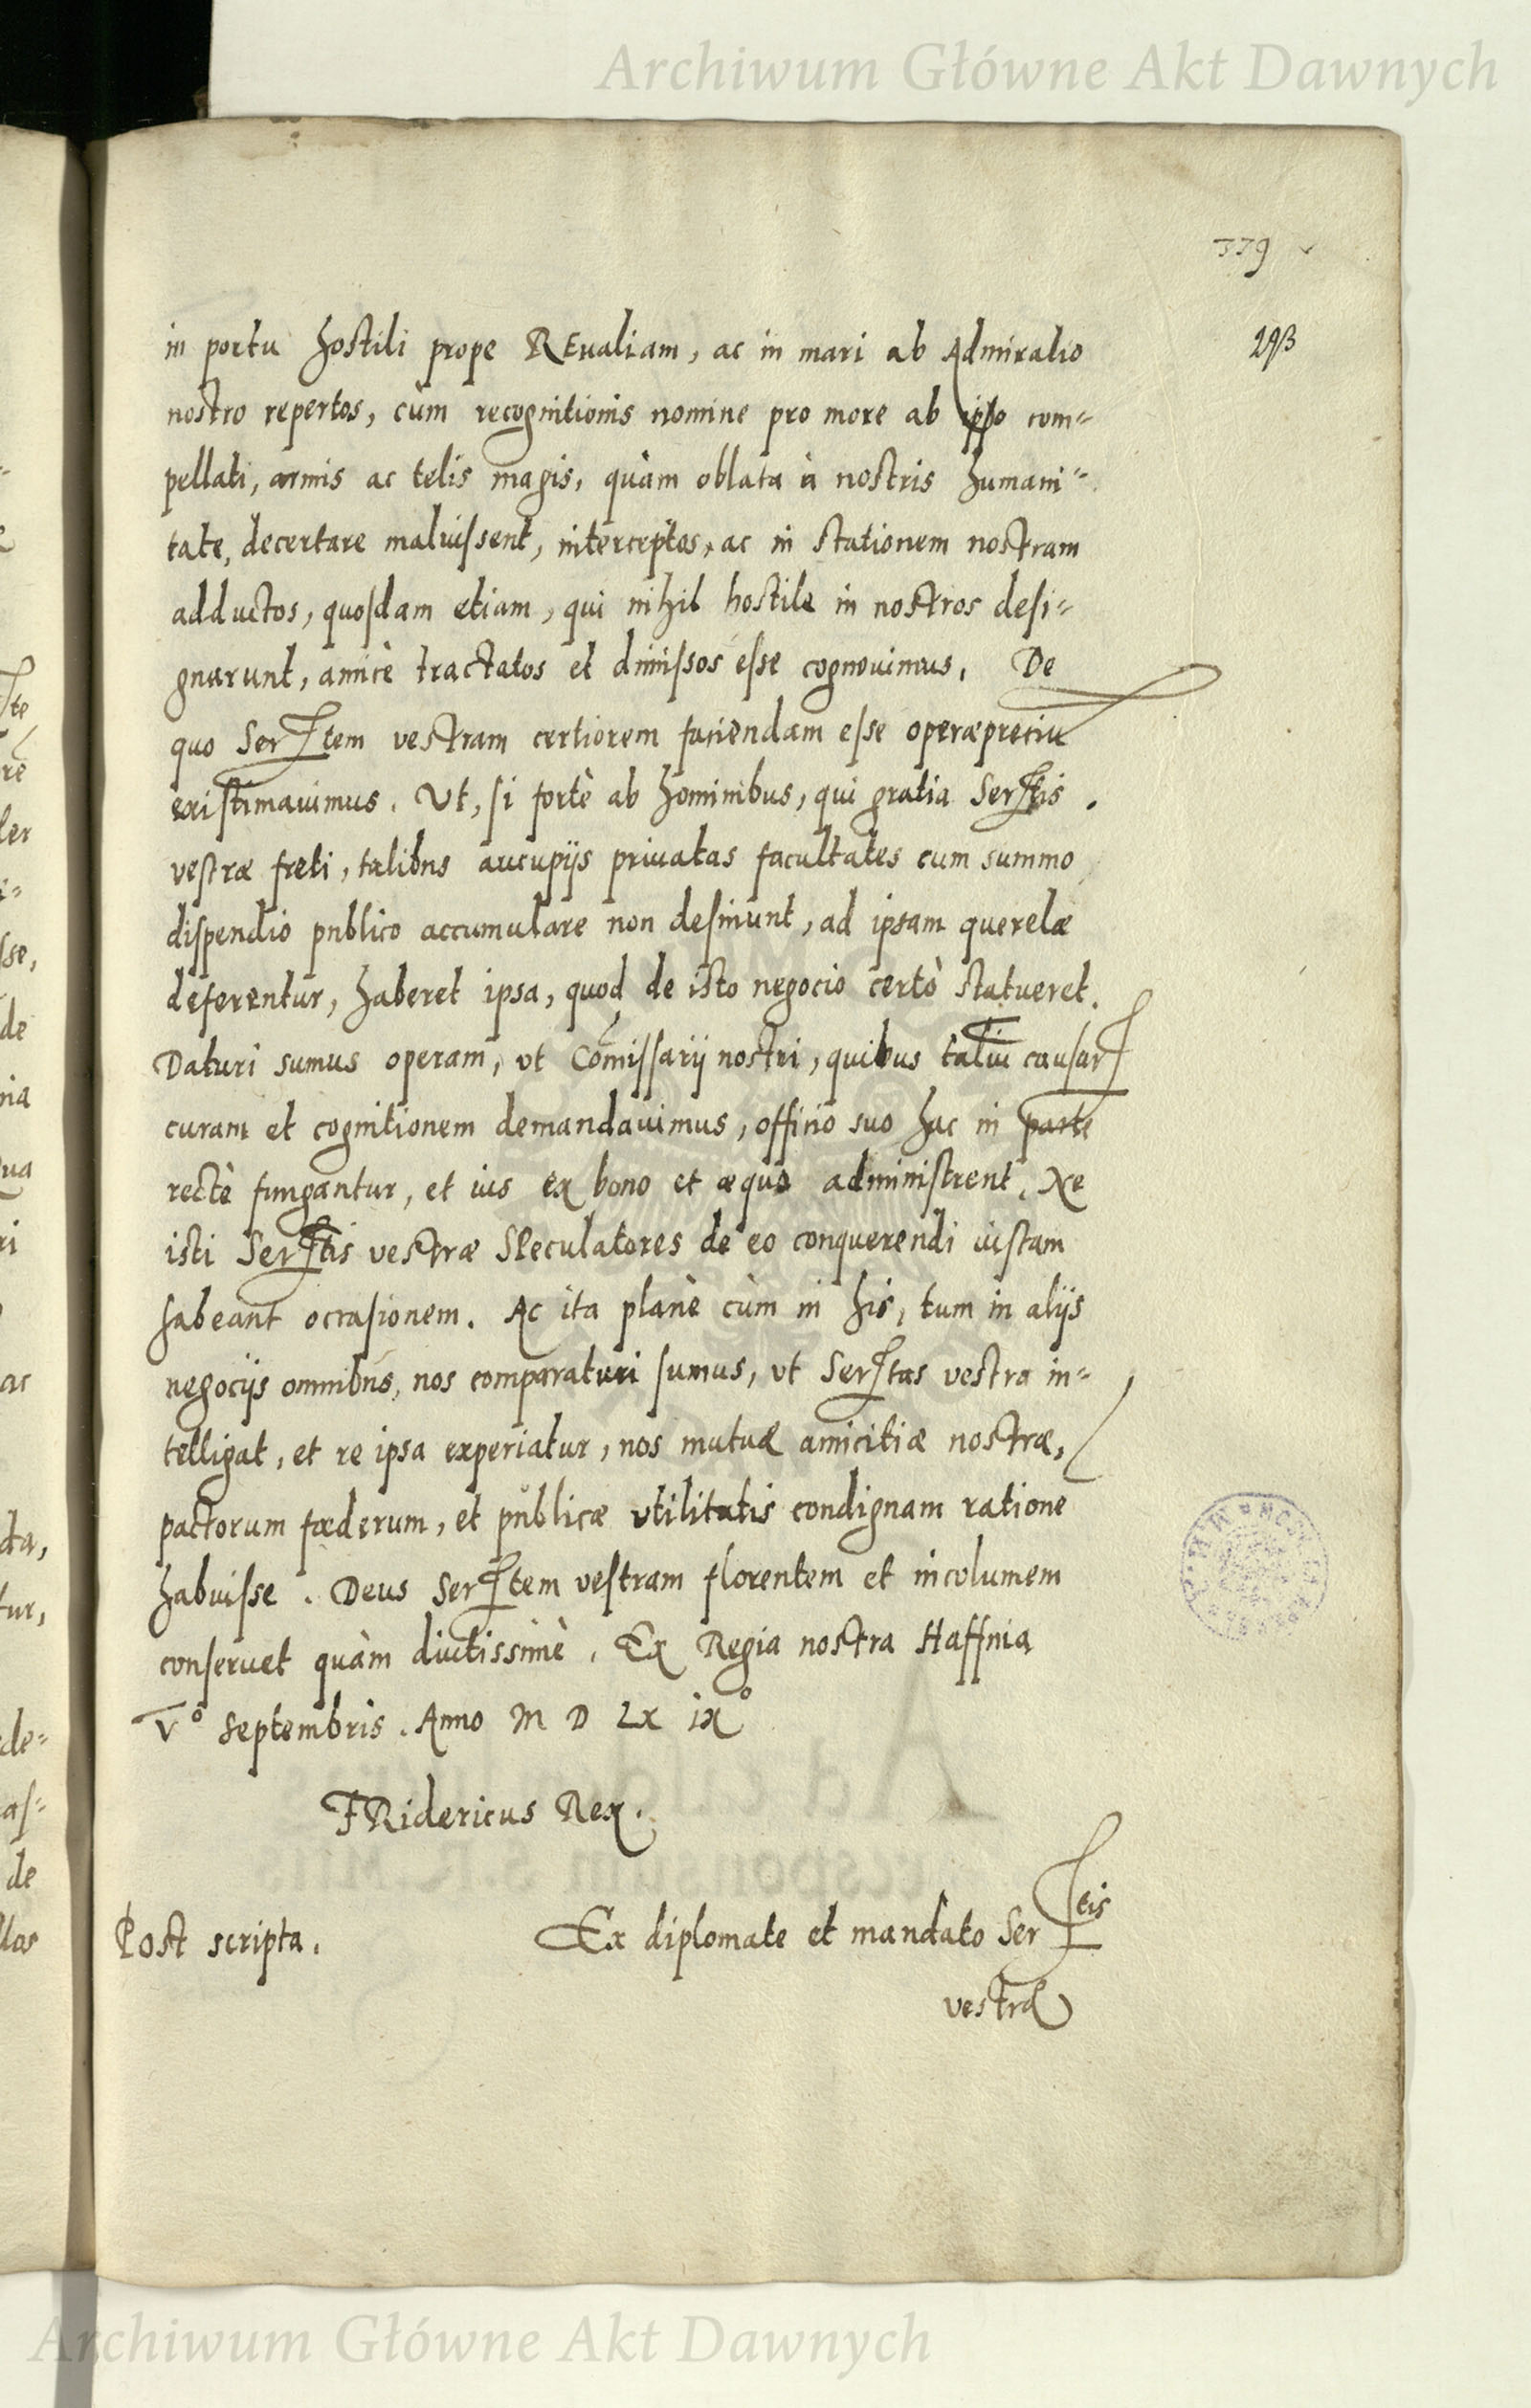 Archiwum Główne Akt Dawnych
379
293
in portu hostili prope REualiam, ac in mari ab Admiralio
nostro repertos, cùm recognitionis nomine pro more ab ipso com-
pellati, armis ac telis magis, quàm oblata à nostris humani-
tate, decertare maluissent, interceptos, ac in stationem nostram
adductos, quosdam etiam, qui nihil hostile in nostros desi-
gnarunt, amicè tractatos et dimissos esse cognouimus. De
quo Sertem vestram certiorem faciendam esse operæpreciū
existimauimus. Vt, si fortè ab hominibus, qui gratia Sertis
vestræ freti, talibus aucupijs priuatas facultates cum summo
dispendio publico accumulare non desinunt, ad ipsam querelæ
deferentur, haberet ipsa, quod de isto negocio certò statueret.
Daturi sumus operam, vt Com̃issarij nostri, quibus taliū causar
curam et cognitionem demandauimus, officio suo hac in parte
rectè fungantur, et ius ex bono et æquo administrent. Ne
isti Sertis vestræ Speculatores de eo conquerendi iustam
habeant occasionem. Ac ita planè cùm in his, tum in alijs
negocijs omnibus, nos comparaturi sumus, vt Sertas vestra in-
telligat, et re ipsa experiatur, nos mutuæ amicitiæ nostræ,
pactorum fœderum, et publicæ vtilitatis condignam ratione
habuisse. Deus Sertem vestram florentem et incolumem
conseruet quàm diutissimè. Ex Regia nostra Haffnia
Vº Septembris. Anno M D LX ixº
FRidericus Rex.
Post scripta. Ex diplomate et mandato Sertis
vestræ
Archiwum Główne Akt Dawnych